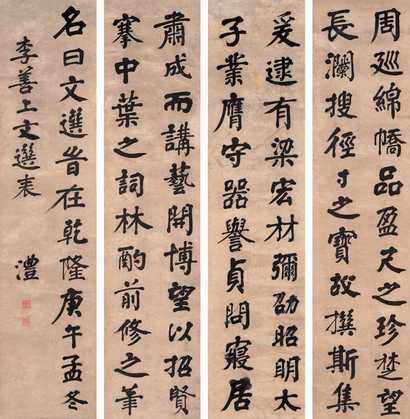 周廵綿嶠品盈尺之珍楚望
長瀾搜徑寸之寶故撰斯集
爰逮有梁宏材彌劭昭明太
子業膺守器譽貞問寢居
肅成而講藝開博望以招賢
搴中葉之詞林酌前修之筆
名曰文選旹在乾隆庚午孟冬
李善上文選表 澧